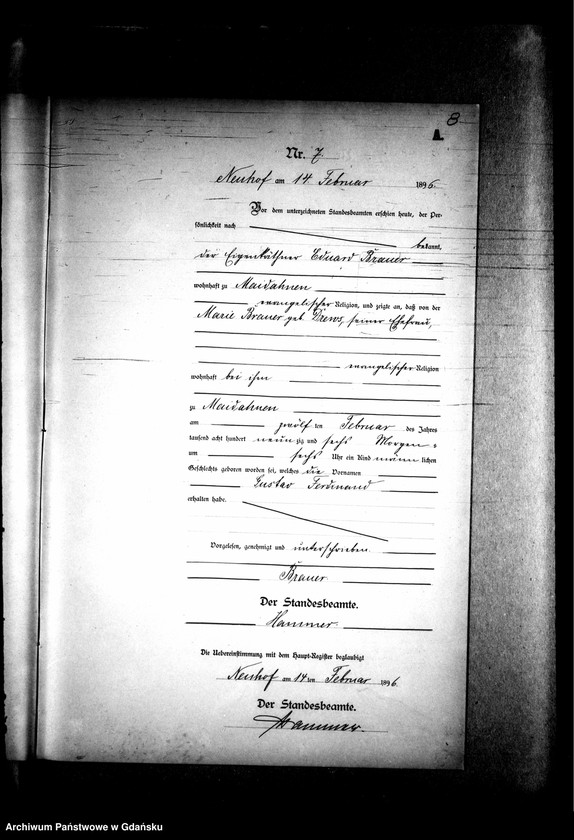 8
A.
Nr. 7
Neuhof am 14 Februar 1896.
Vor dem unterzeichneten Standesbeamten erschien heute, der Per-
sönlichkeit nach
bekannt,
der Eigenkäthner Eduard Brauer
wohnhaft zu Maidahnen
evangelischer Religion, und zeigte an, daß von der
Marie Brauer geb. Drews, seiner Ehefrau,
evangelischer Religion
wohnhaft bei ihm
zu Maidahnen
am zwölf ten Februar des Jahres
tausend acht hundert neun zig und sechs Morgen=
um sechs Uhr ein Kind männ lichen
Geschlechts geboren worden sei, welches die Vornamen
Gustav Ferdinand
erhalten habe.
Vorgelesen, genehmigt und unterschrieben
Brauer
Der Standesbeamte.
Hammer.
Die Uebereinstimmung mit dem Haupt-Register beglaubigt
Neuhof am 14 ten Februar 1896.
Der Standesbeamte.
Hammer.
Archiwum Państwowe w Gdańsku